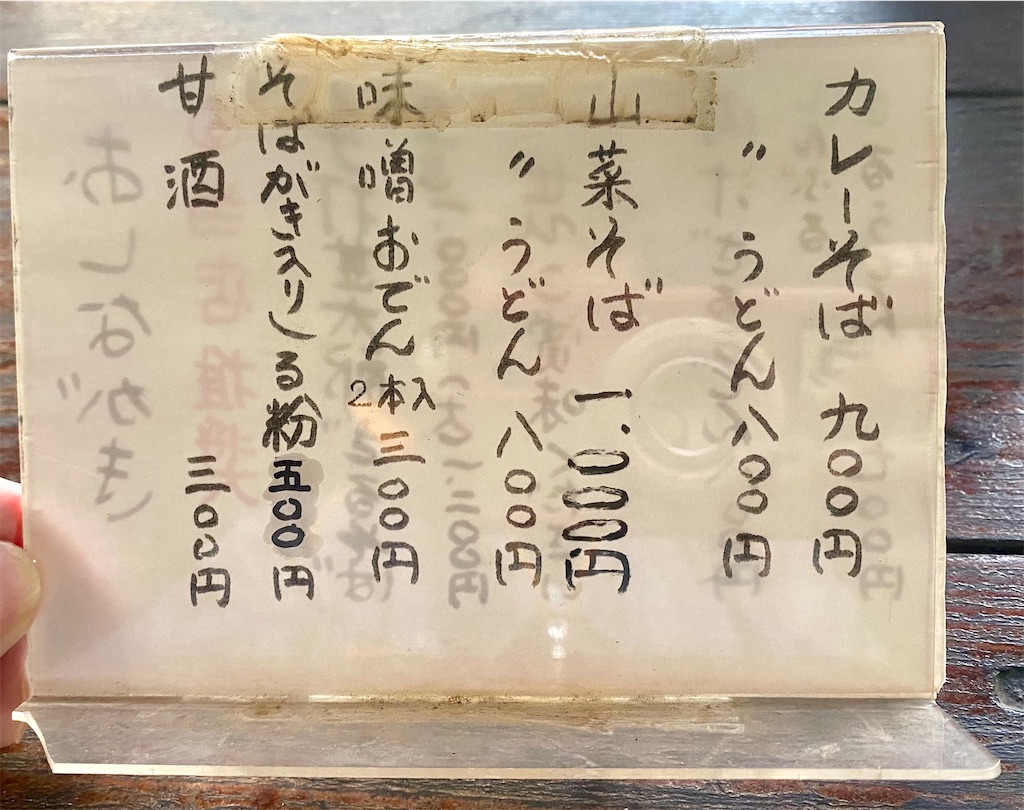 カレーそば 九〇〇円
〃 うどん 八〇〇円
山菜そば 一、〇〇〇円
〃 うどん 八〇〇円
味噌おでん 2本入 三〇〇円
そばがき入りしる粉 五〇〇円
甘酒 三〇〇円